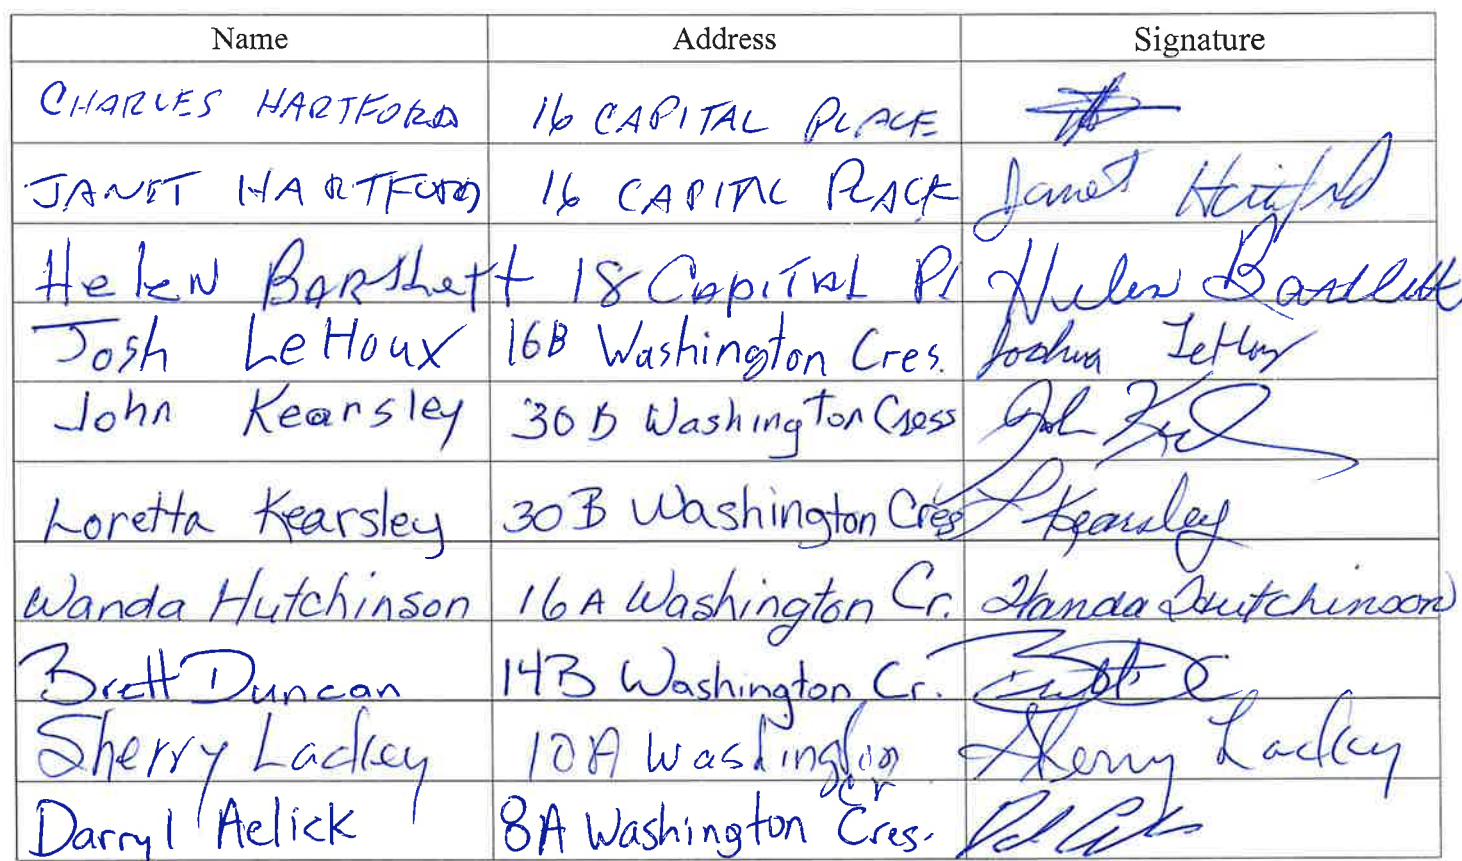 Name Address Signature
CHARLES HARTFORD 16 CAPITAL PLACE
JANET HARTFORD 16 CAPITAL PLACE Janet Hartford
Helen BARtlett 18 CAPITAL Pl Helen Bartlett
Josh LeHoux 16B Washington Cres. Joshua LeHoux
John Kearsley 30B Washington Cress John
Loretta Kearsley 30B Washington Cres L Kearsley
Wanda Hutchinson 16A Washington Cr. Wanda Hutchinson
Brett Duncan 14B Washington Cr.
Sherry Lackey 10A Washington cr Sherry Lackey
Darryl Aelick 8A Washington Cres.